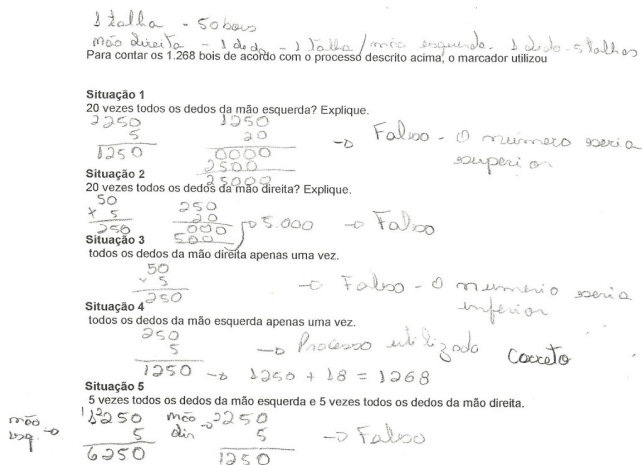 1 talha - 50 bois
mão direita - 1 dedo - 1 talha / mão esquerda - 1 dedo - 5 talhas
Para contar os 1.268 bois de acordo com o processo descrito acima, o marcador utilizou
Situação 1
20 vezes todos os dedos da mão esquerda? Explique.
2250 1250
5 20
1250 0000
2500
25000
→ Falso - O número seria
superior
Situação 2
20 vezes todos os dedos da mão direita? Explique.
50 250
× 5 20
250 000
500
→ 5.000 → Falso
Situação 3
todos os dedos da mão direita apenas uma vez.
50
× 5
250
→ Falso - O numerio seria
inferior
Situação 4
todos os dedos da mão esquerda apenas uma vez.
250
5
1250 → 1250 + 18 = 1268
→ Processo utilizado correto
Situação 5
5 vezes todos os dedos da mão esquerda e 5 vezes todos os dedos da mão direita.
mão
esq. → 1250
5
6250
mão
dir → 2250
5
1250
→ Falso